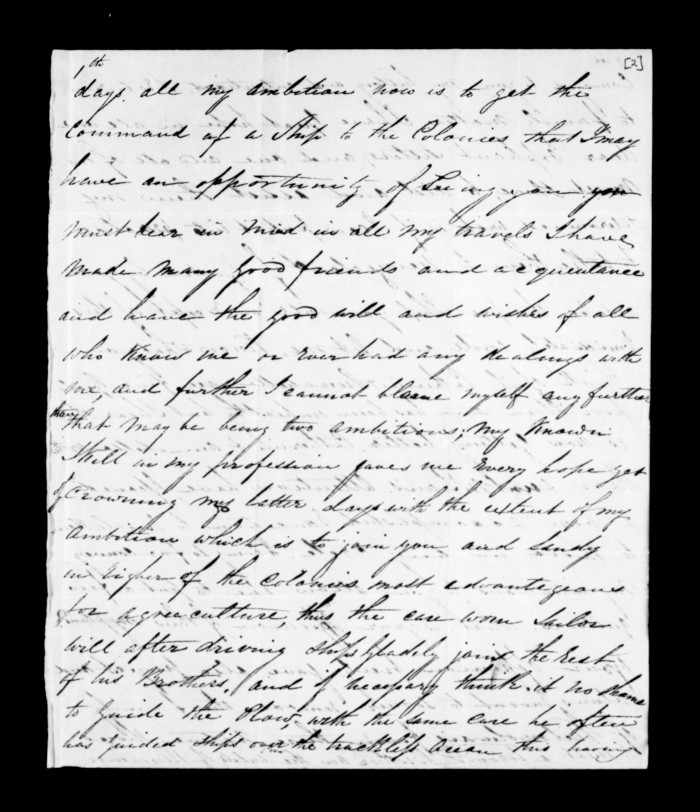 [2]
1th
days. all my ambition now is to get the
Command of a Ship to the Colonies that I may
have an opportunity of Seeing you you
must bear in mind in all my travels I have
made many good friends and acquentance
and have the good will and wishes of all
who Know me or ever had any dealings with
me, and further I cannot blame myself any further
than that may be being two ambitions; my Known
Skill in my profession gives me Every hope yet
of crowning my latter days with the extent of my
ambition which is to join you and Sandy
in Eigher of the Colonies most advantageous
for agreaculture, thus the care worn Sailor
will after driving Ships gladily join the rest
of his Brothers, and if necessary think it no shame
to guide the Plow, with the same care he often
has guided Ships over the trackless Ocean thus having